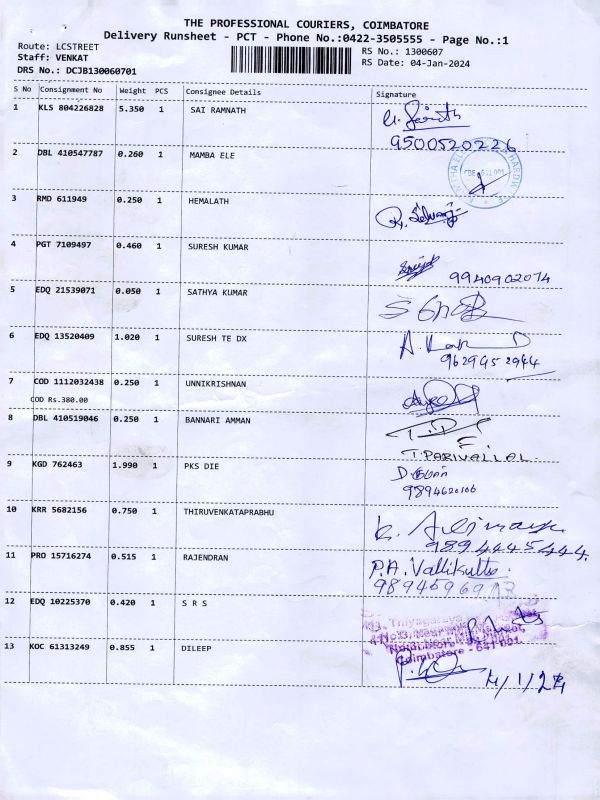 THE PROFESSIONAL COURIERS, COIMBATORE
Delivery Runsheet - PCT - Phone No.:0422-3505555 - Page No.:1
Route: LCSTREET
RS No.: 1300607
Staff: VENKAT
RS Date: 04-Jan-2024
DRS No.: DCJB130060701
S No Consignment No Weight PCS Consignee Details Signature
1 KLS 804226828 5.350 1 SAI RAMNATH
9500520226
2 DBL 410547787 0.260 1 MAMBA ELE
3 RMD 611949 0.250 1 HEMALATH
4 PGT 7109497 0.460 1 SURESH KUMAR
9940902074
5 EDQ 21539071 0.050 1 SATHYA KUMAR
6 EDQ 13520409 1.020 1 SURESH TE DX
9629452944
7 COD 1112032438 0.250 1 UNNIKRISHNAN
COD Rs.380.00
8 DBL 410519046 0.250 1 BANNARI AMMAN
T.PARIVALLAL
9 KGD 762463 1.990 1 PKS DIE
9894620106
10 KRR 5682156 0.750 1 THIRUVENKATAPRABHU
9894445444
11 PRO 15716274 0.515 1 RAJENDRAN
P.A. Vallikutto
12 EDQ 10225370 0.420 1 S R S
Coimbatore - 641 001
13 KOC 61313249 0.855 1 DILEEP
4/1/24